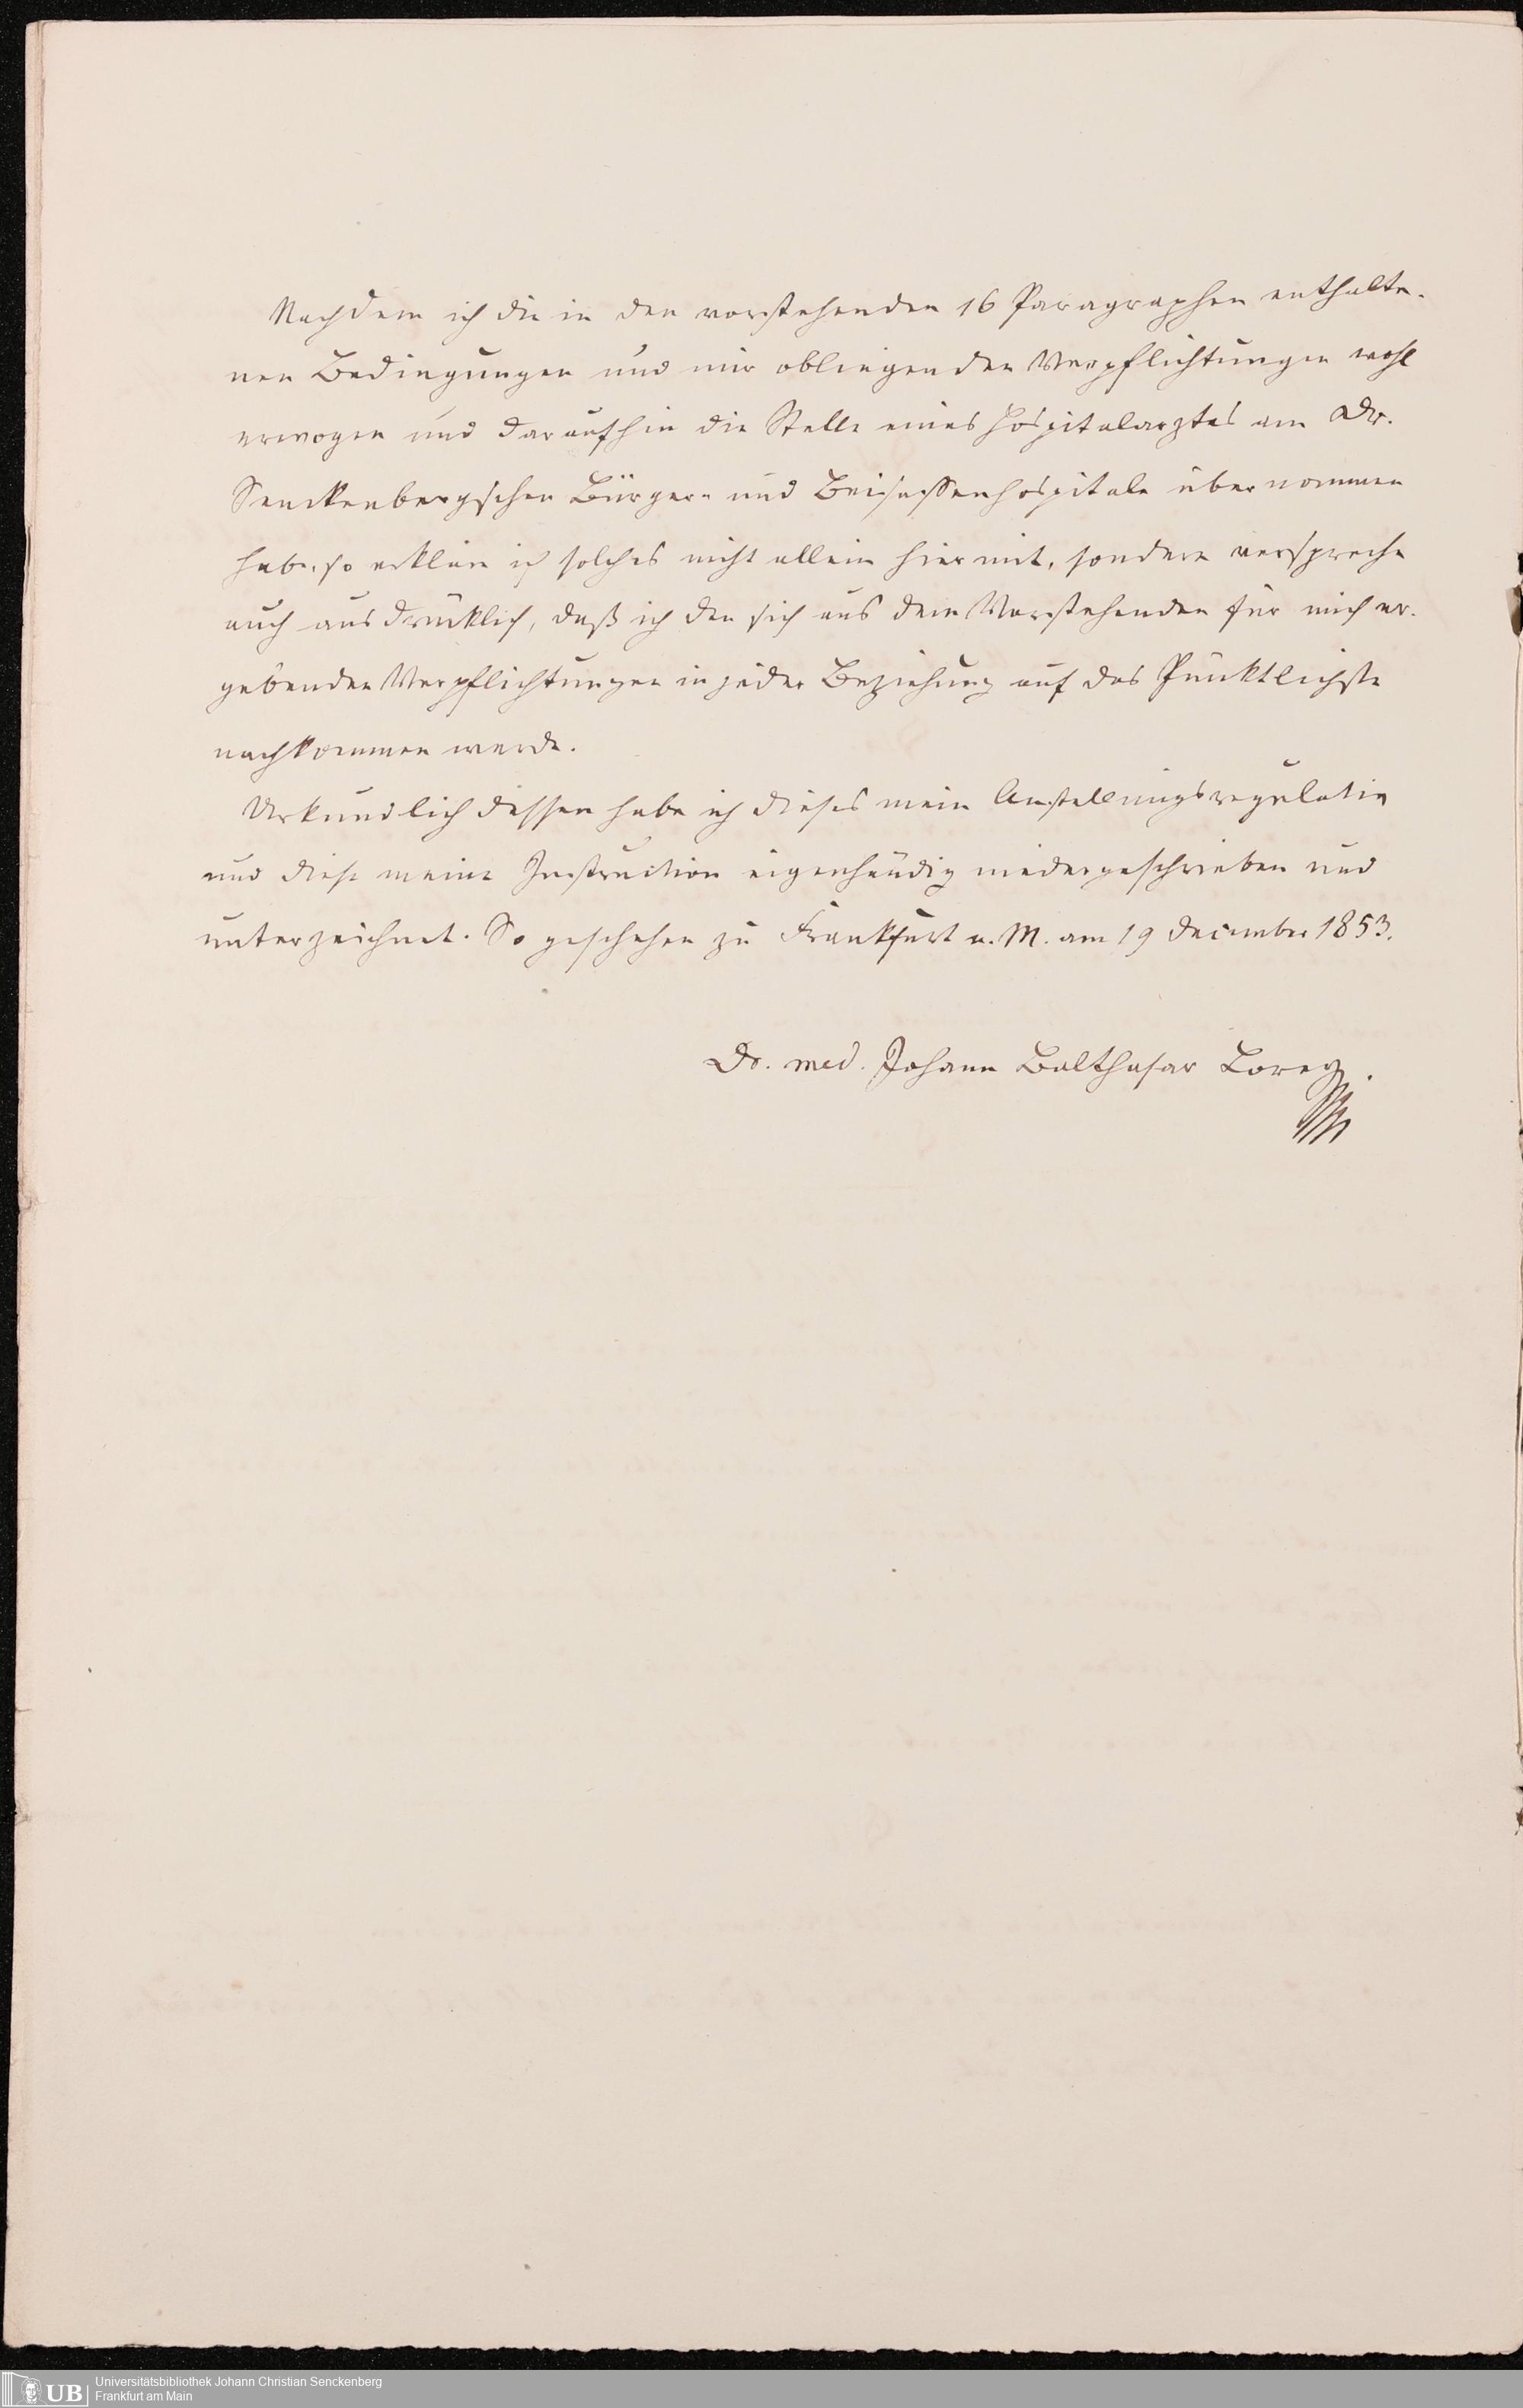 Nachdem ich die in den vorstehenden 16 Paragraphen enthalte-
nen Bedingungen und mir obliegenden Verpflichtungen wohl
erwogen und daraufhin die Stelle eines Hospitalarztes am Dr.
Senckenbergschen Bürger- und Beisassenhospitale übernommen
habe, so erkläre ich solches nicht allein hiermit, sondern verspreche
auch ausdrücklich, daß ich den sich aus dem Vorstehenden für mich er-
gebenden Verpflichtungen in jeder Beziehung auf das Pünktlichste
nachkommen werde.
Urkundlich dessen habe ich dieses mein Anstellungsregulativ
und diese meine Instruction eigenhändig niedergeschrieben und
unterzeichnet. So geschehen zu Frankfurt a. M. am 19 December 1853.
Dr. med. Johann Balthasar Lorey.
UB
Universitätsbibliothek Johann Christian Senckenberg
Frankfurt am Main